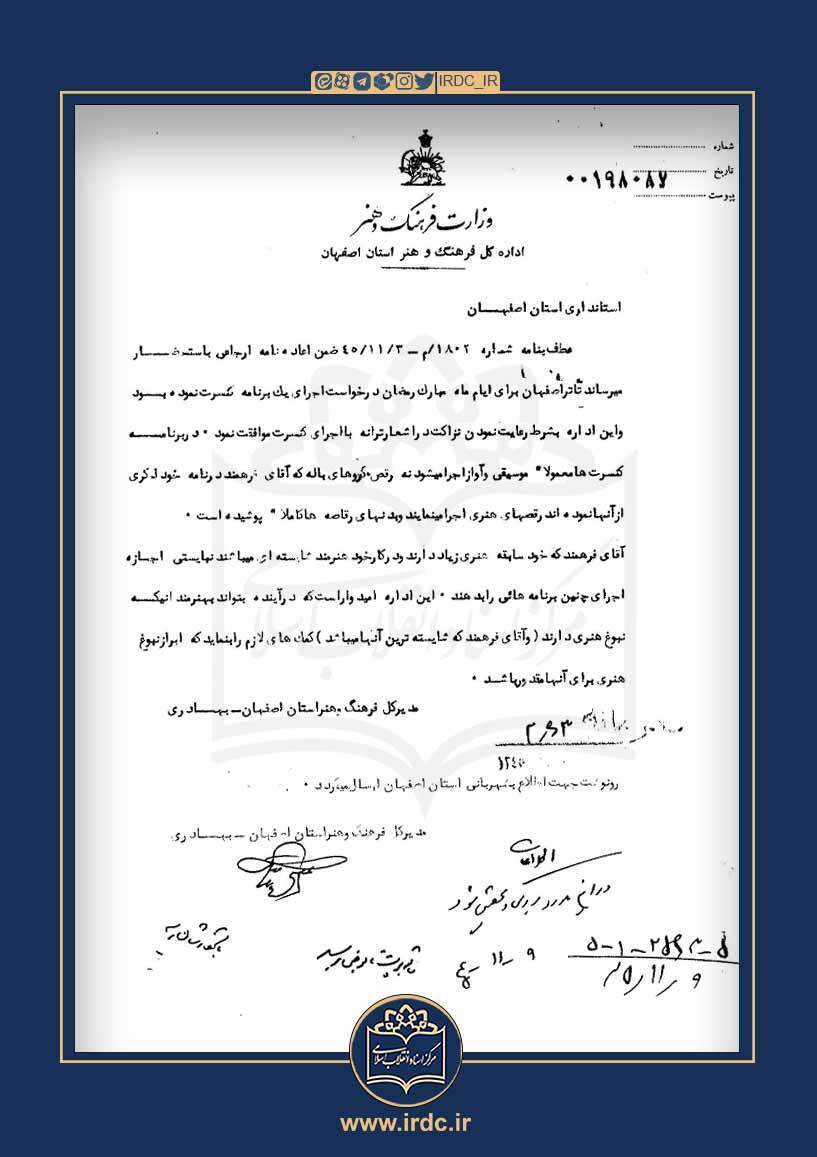 IRDC_IR
شماره
تاریخ
۰۰۱۹۸۰۸۷
پیوست
وزارت فرهنگ و هنر
اداره کل فرهنگ و هنر استان اصفهان
استانداری استان اصفهان
عطف بنامه شماره ۱۸۰۲/م – ۴۵/۱۱/۳ ضمن اعاده نامه ارجاعی باستحضار
میرساند تاتر اصفهان برای ایام ماه مبارک رمضان درخواست اجرای یک برنامه کنسرت نموده بود
و این اداره بشرط رعایت نمودن نزاکت در اشعار ترانه با اجرای کنسرت موافقت نمود . در برنامه
کنسرت ها معمولا" موسیقی و آواز اجرا میشود نه رقص گروهای باله که آقای فرهمند در نامه خود ذکری
از آنها نموده اند رقصهای هنری اجرا مینمایند و بدنهای رقاصه ها کاملا" پوشیده است .
آقای فرهمند که خود سابقه هنری زیاد دارند و در کار خود هنرمند شایسته ای میباشند نبایستی اجازه
اجرای چنین برنامه هائی را بدهند . این اداره امیدوار است که در آینده بتواند بهنرمندانیکه
نبوغ هنری دارند ( و آقای فرهمند که شایسته ترین آنها میباشد ) کمک های لازم را بنماید که ابراز نبوغ
هنری برای آنها مقدور باشد .
مدیرکل فرهنگ و هنر استان اصفهان – بهادری
رونوشت جهت اطلاع بشهربانی استان اصفهان ارسال میگردد .
مدیرکل فرهنگ و هنر استان اصفهان – بهادری
اطلاعات
در این مورد رسیدگی و تحقیق شود
۹ – ۱۱
مرکز اسناد انقلاب اسلامی
www.irdc.ir